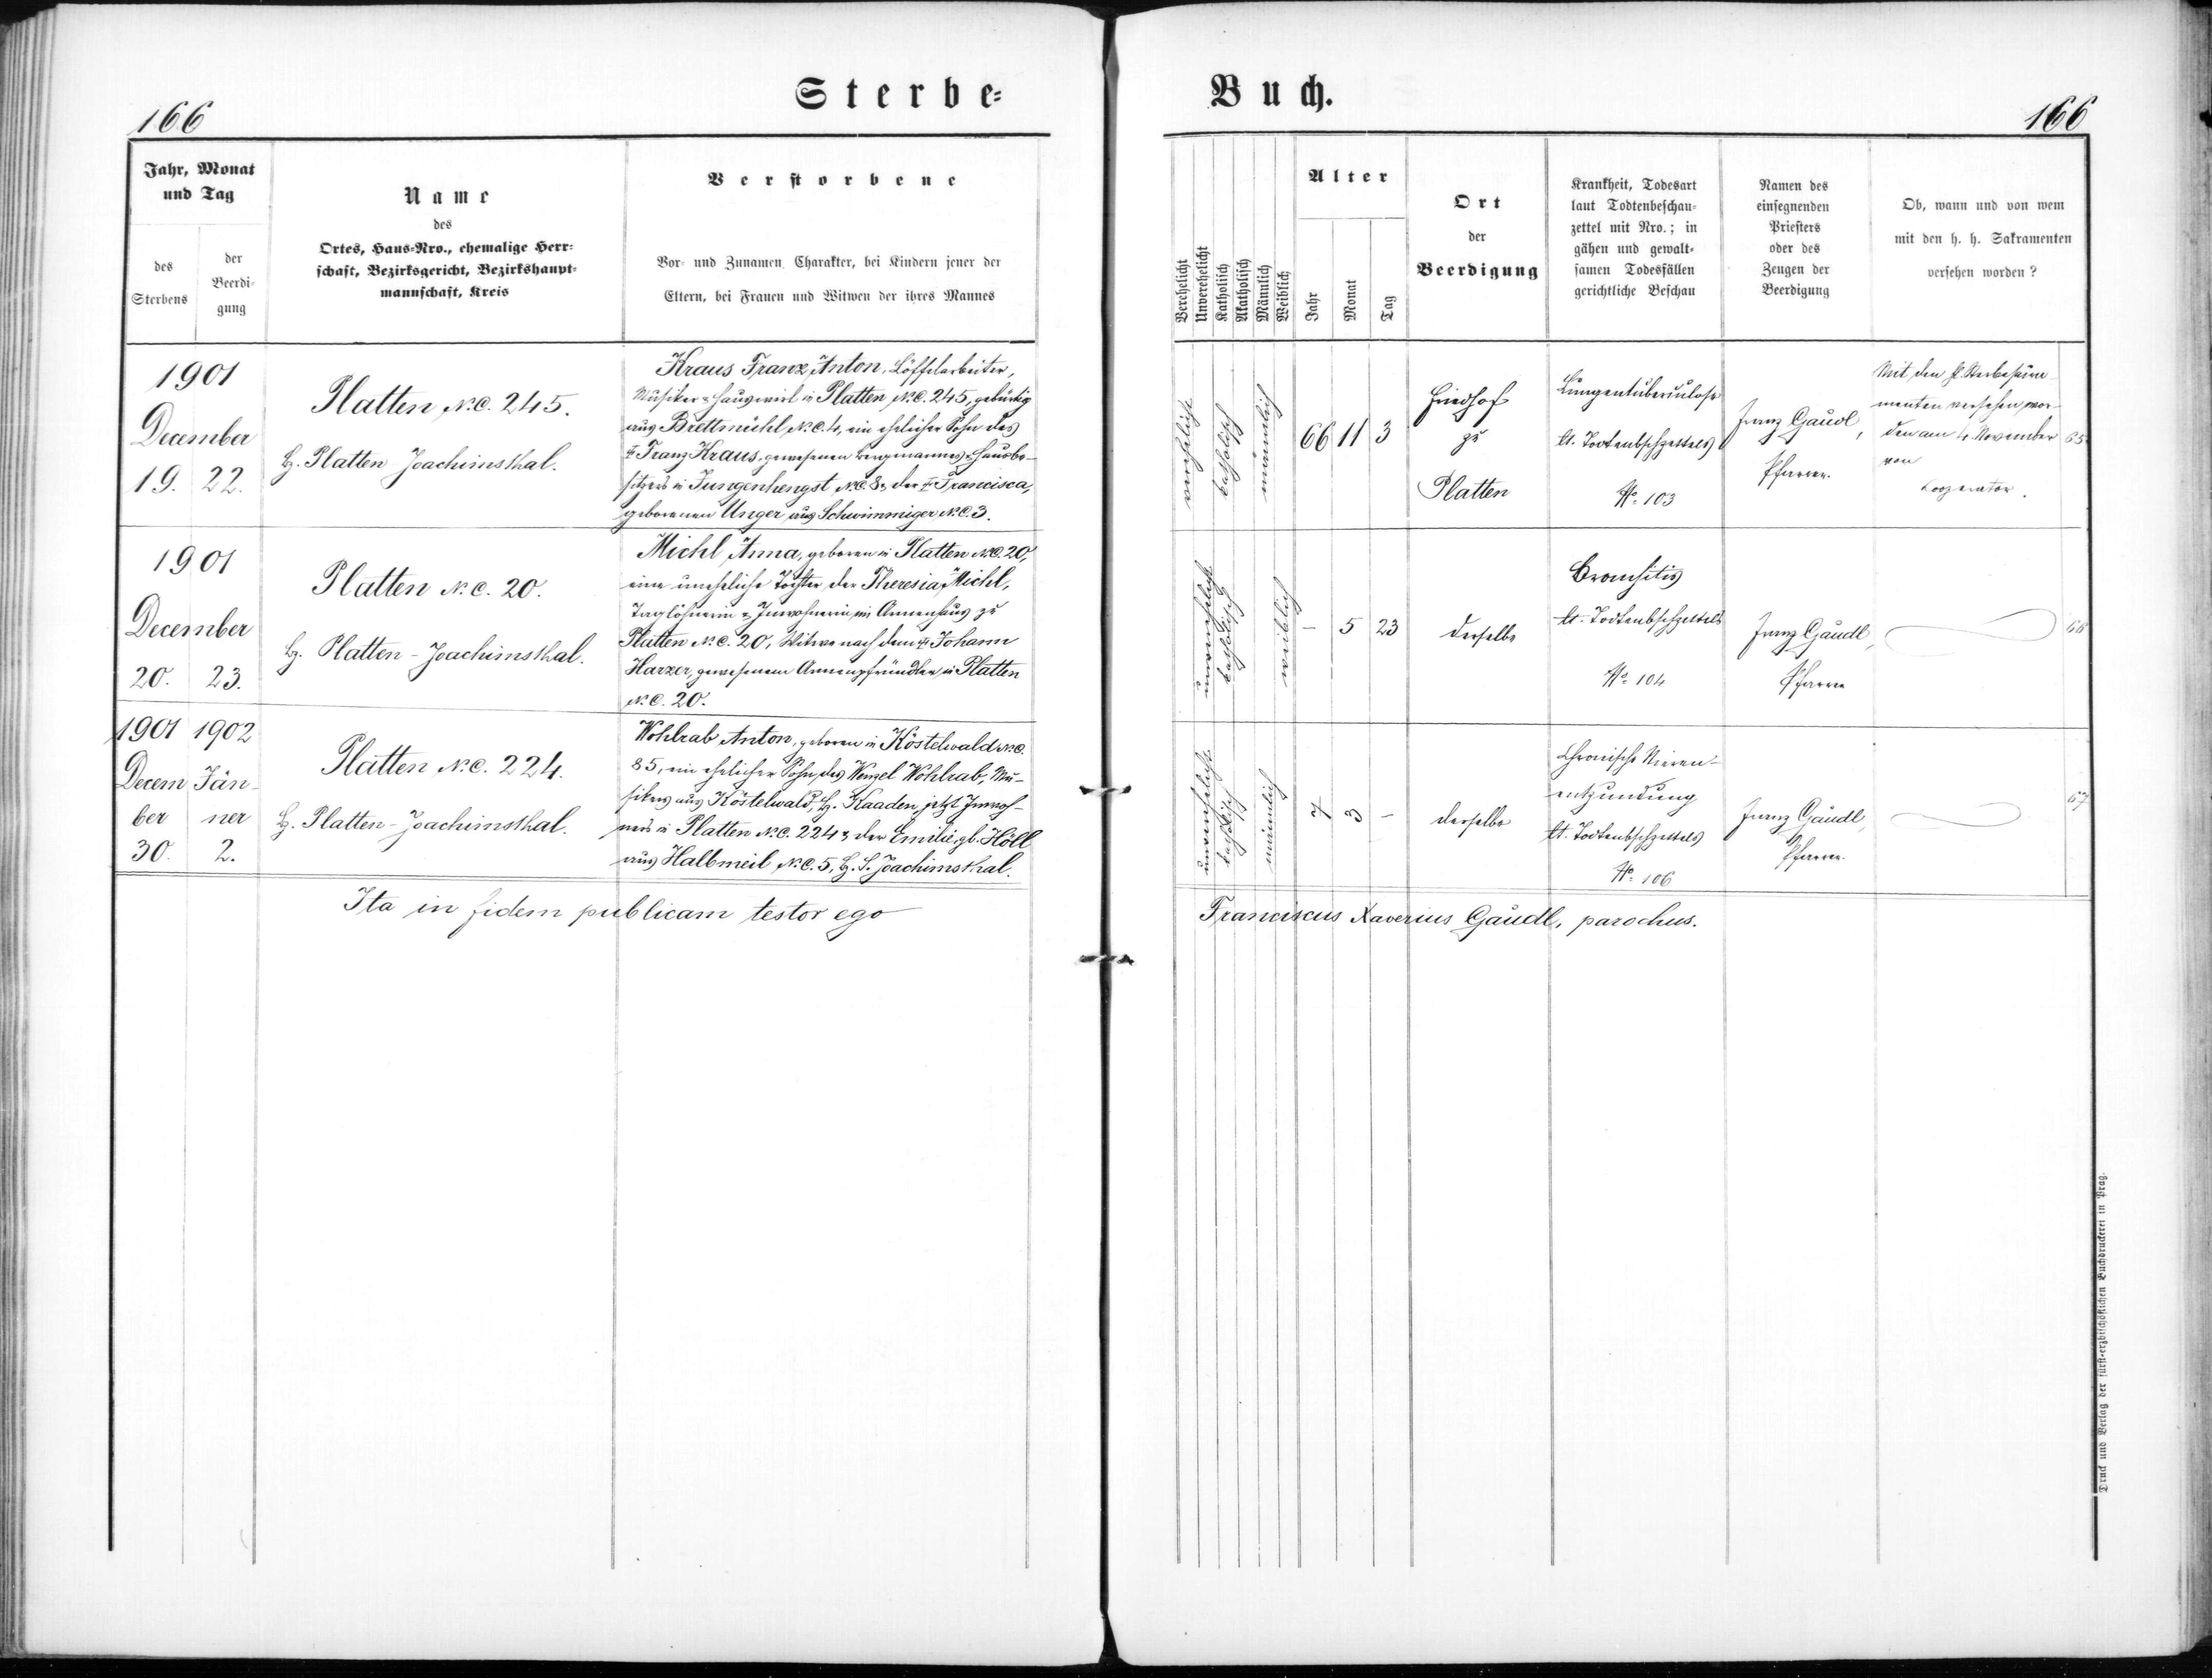 Sterbe-
Buch.
166
166
Jahr, Monat
und Tag
des
Sterbens
der
Beerdi-
gung
Name
des
Ortes, Haus-Nro., ehemalige Herr-
schaft, Bezirksgericht, Bezirkshaupt-
mannschaft, Kreis
Verstorbene
Vor- und Zunamen, Charakter, bei Kindern jener der
Eltern, bei Frauen und Witwen der ihres Mannes
Verehelicht
Unverehelicht
Katholisch
Akatholisch
Männlich
Weiblich
Alter
Jahr
Monat
Tag
Ort
der
Beerdigung
Krankheit, Todesart
laut Todtenbeschau-
zettel mit Nro.; in
gähen und gewalt-
samen Todesfällen
gerichtliche Beschau
Namen des
einsegnenden
Priesters
oder des
Zeugen der
Beerdigung
Ob, wann und von wem
mit den h. h. Sakramenten
versehen worden?
1901
December
19. 22.
Platten N.C. 245.
B. Platten Joachimsthal.
Kraus Franz Anton, Löffelarbeiter,
Musiker & Hauswirt in Platten N.C. 245, gebürtig
aus Brettmühl N.C. 4, ein ehelicher Sohn des
† Franz Kraus, gewesenen Bergmannes & Hausbe-
sitzers in Jungenhengst N.C. 8 & der † Francisca,
geborenen Unger aus Schwimmiger N.C. 3.
verehelicht
katholisch
männlich
66 11 3
Friedhof
zu
Platten
Lungentuberculose
lt. Todtenbschzettels
No. 103
Franz Gaudl,
Pfarrer.
Mit den hl. Sterbesacra-
menten versehen wor-
den am 4. November
von
Cooperator.
65
1901
December
20. 23.
Platten N.C. 20.
B. Platten-Joachimsthal.
Michl Anna, geboren in Platten N.C. 20,
eine uneheliche Tochter der Theresia Michl,
Taglöhnerin & Inwohnerin im Armenhaus zu
Platten N.C. 20, Witwe nach dem † Johann
Harzer, gewesenem Armenpfründler in Platten
N.C. 20.
unverehelicht
katholisch
weiblich
- 5 23
derselbe
Bronchitis
lt. Todtenbschzettels
No. 104
Franz Gaudl,
Pfarrer
66
1901 1902
Decem Jän-
ber ner
30. 2.
Platten N.C. 224.
B. Platten-Joachimsthal.
Wohlrab Anton, geboren in Köstelwald N.C.
85, ein ehelicher Sohn des Wenzel Wohlrab, Mu-
sikers aus Köstelwald, B. Kaaden, jetzt Inwoh-
ners in Platten N.C. 224 & der Emilie, gb. Höll
aus Halbmeil N.C. 5, B. S. Joachimsthal.
unverehelicht
katholisch
männlich
7 3 -
derselbe
Chronische Nieren-
entzündung
lt. Todtenbschzettels
No. 106
Franz Gaudl,
Pfarrer.
67
Ita in fidem publicam testor ego
Franciscus Xaverius Gaudl, parochus.
Druck und Verlag der fürst-erzbischöflichen Buchdruckerei in Prag.